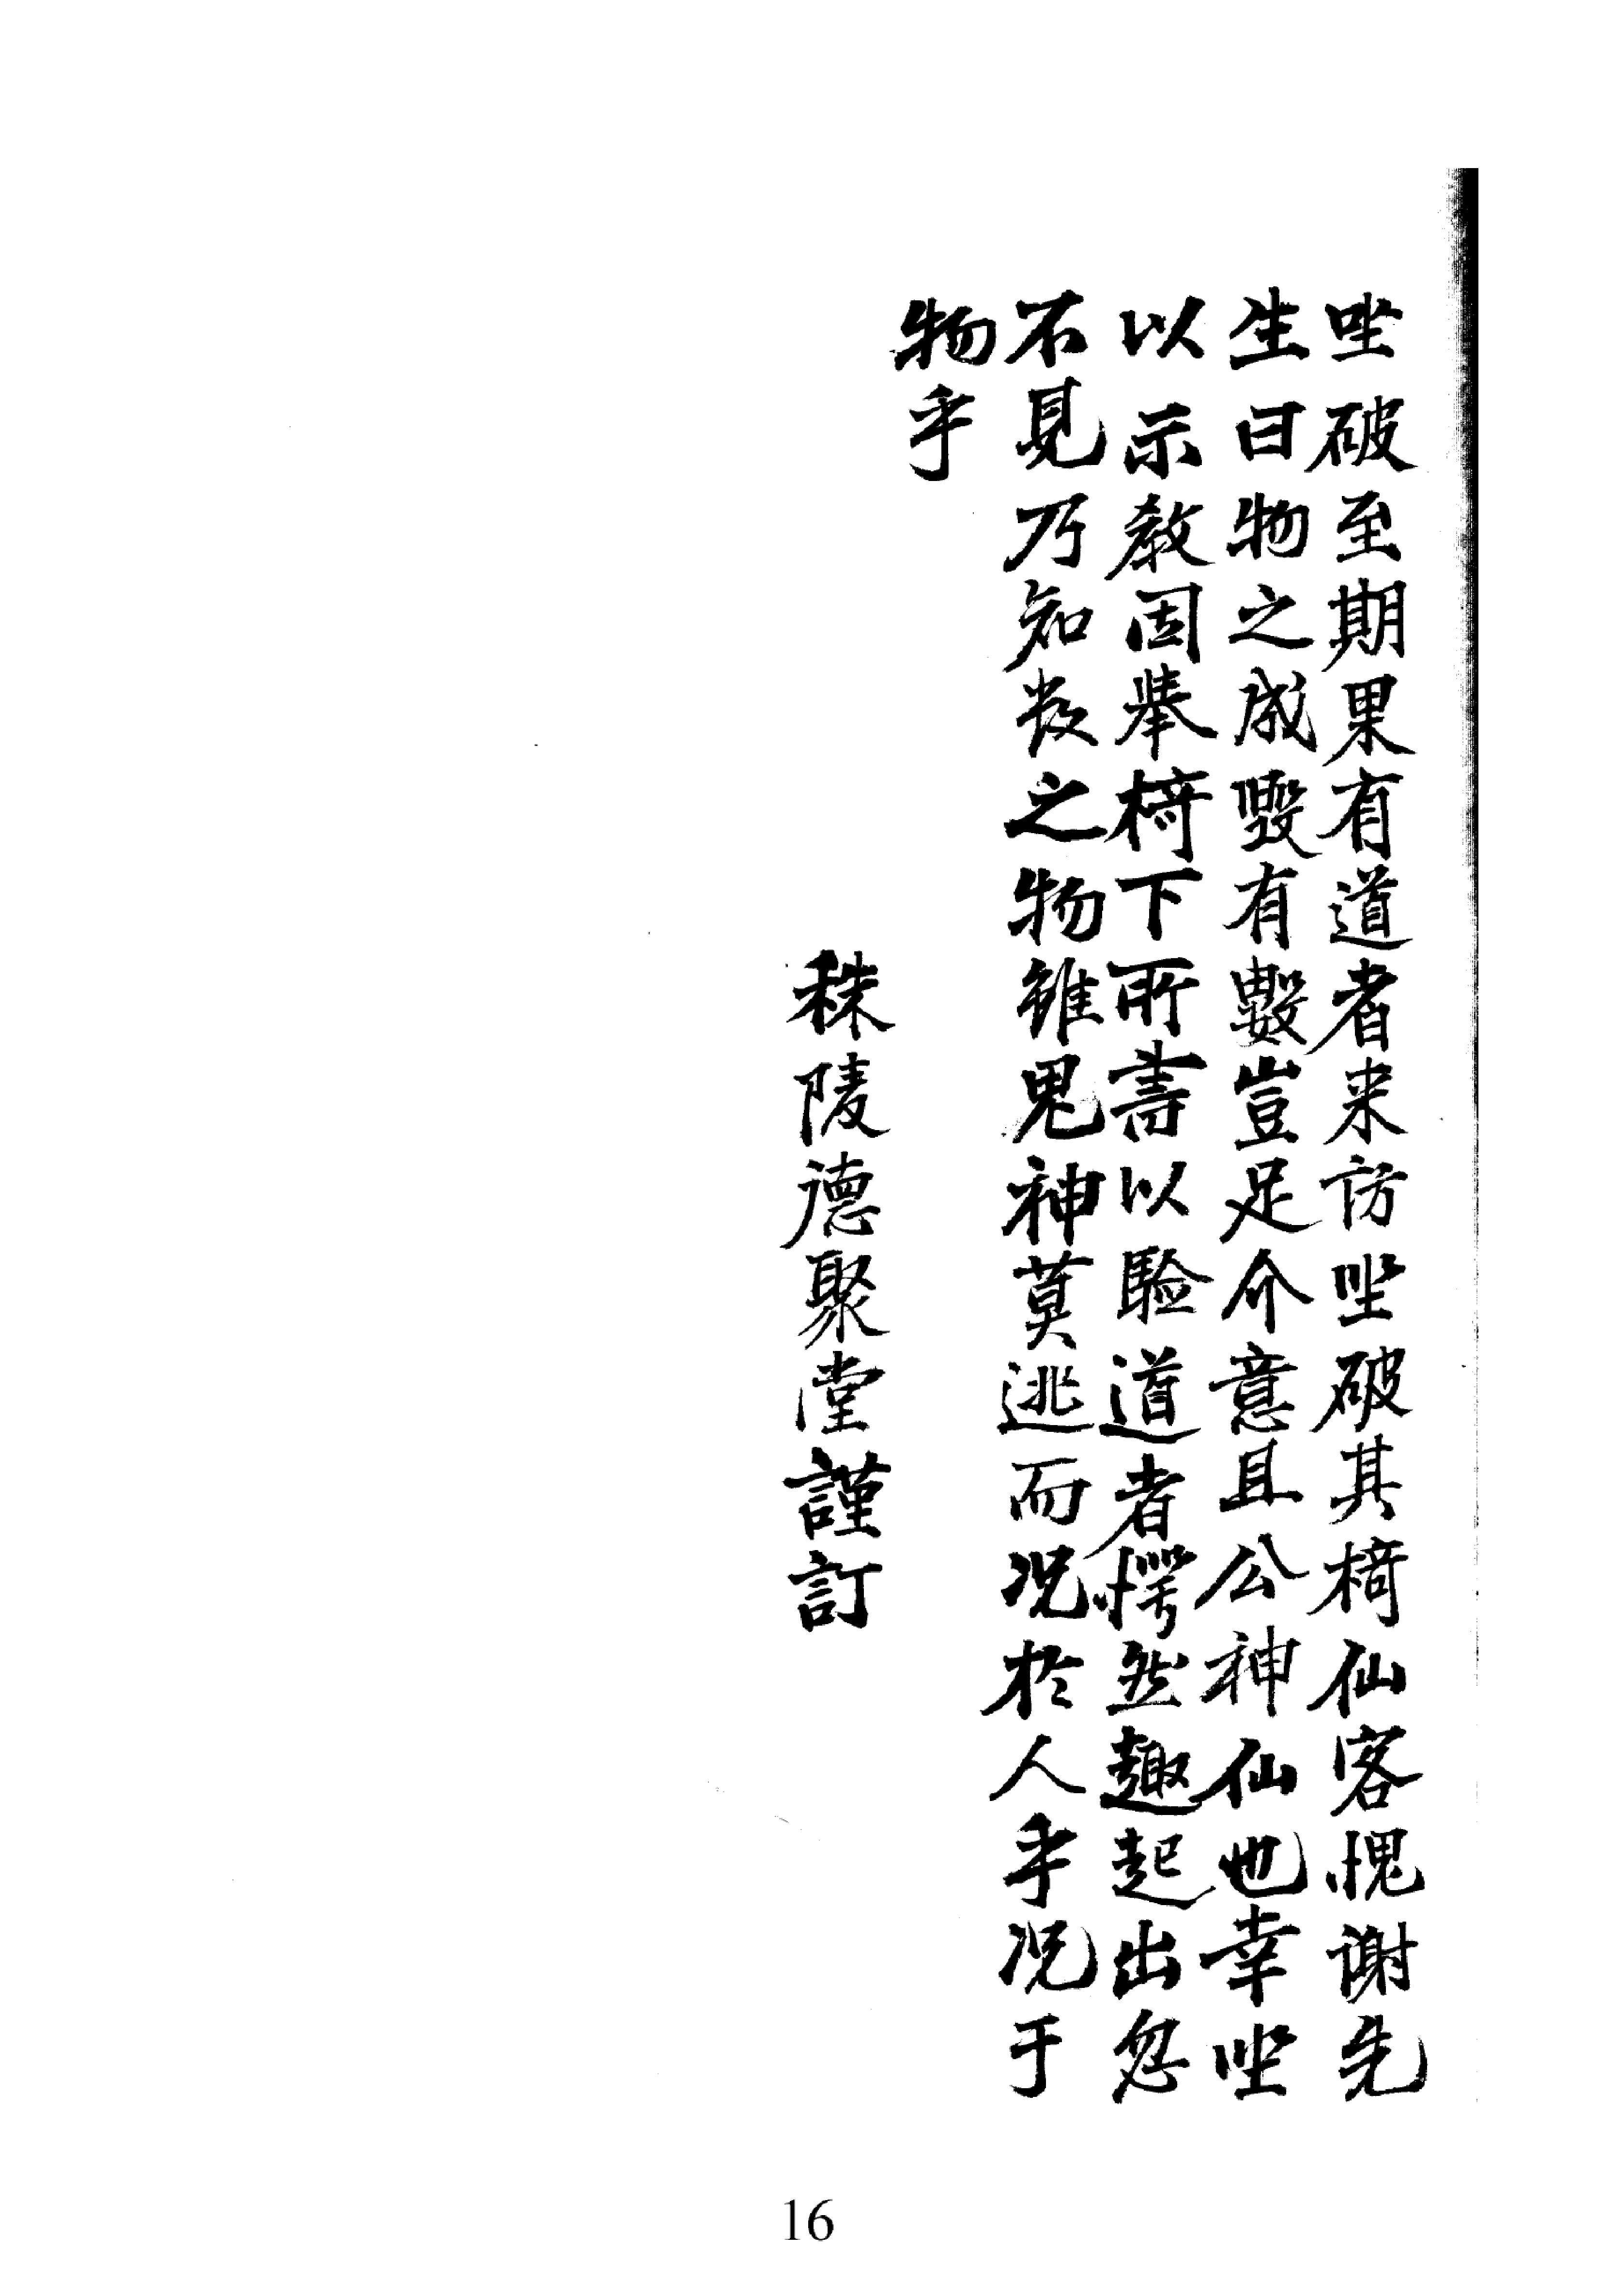 坐破至期果有道者来訪坐破其椅仙客愧谢先
生曰物之成毁有數豈足介意且公神仙也幸坐
以示教因举椅下所書以驗道者愕然趣起出忽
不見乃知数之物雖鬼神莫逃而况於人乎况于
物乎
秣陵德聚堂謹訂
16